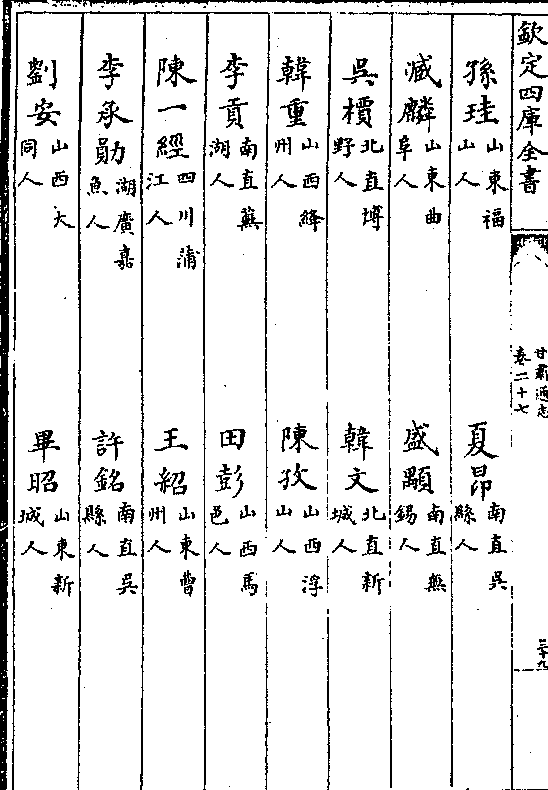 欽定四庫全書
甘肅通志
卷二十七
孫珪山東福山人
夏昂南直吳縣人
臧麟山東曲阜人
盛顒南直無錫人
吳櫝北直博野人
韓文北直新城人
韓重山西絳州人
陳孜山西浮山人
李貢南直蕪湖人
田彭山西馬邑人
陳一經四川蒲江人
王紹山東曹州人
李承勛湖廣嘉魚人
許銘南直吳縣人
劉安山西大同人
畢昭山東新城人